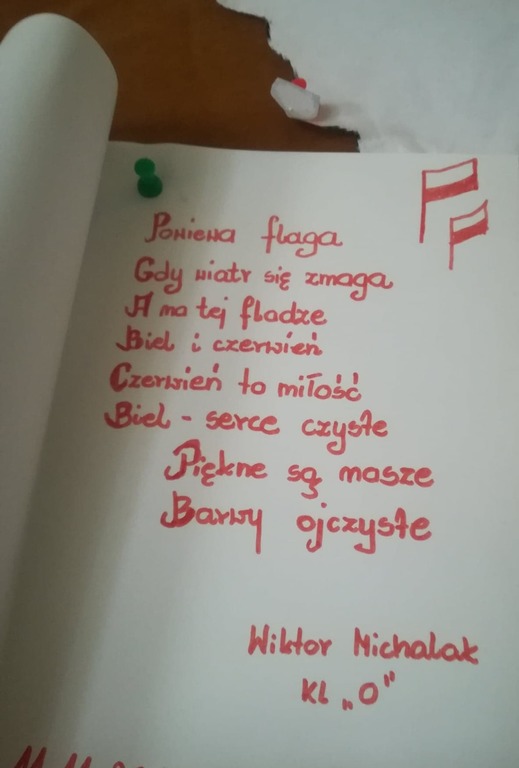 Powiewa flaga
Gdy wiatr się zmaga
A na tej fladze
Biel i czerwień
Czerwień to miłość
Biel - serce czyste
Piękne są nasze
Barwy ojczyste
Wiktor Michalak
Kl „O”